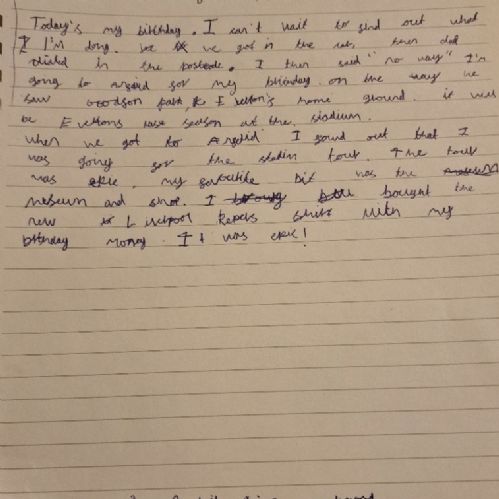 Today's my bithday. I can't wait to find out what
I I'm doing. We we got in the car, then dad
diald in the postcode. I then said "no way" I'm
going to anfield for my birthday. on the way we
saw Goodson park, Everton's home ground. it will
be Evertons last season at the stadium.
when we got to Anfield I found out that I
was going for the stadin tour. The tour
was epic. my favoutite bit was the
meseum and shop. I bought the
new Liverpool Keepers shirt with my
bithday money. It was epic!